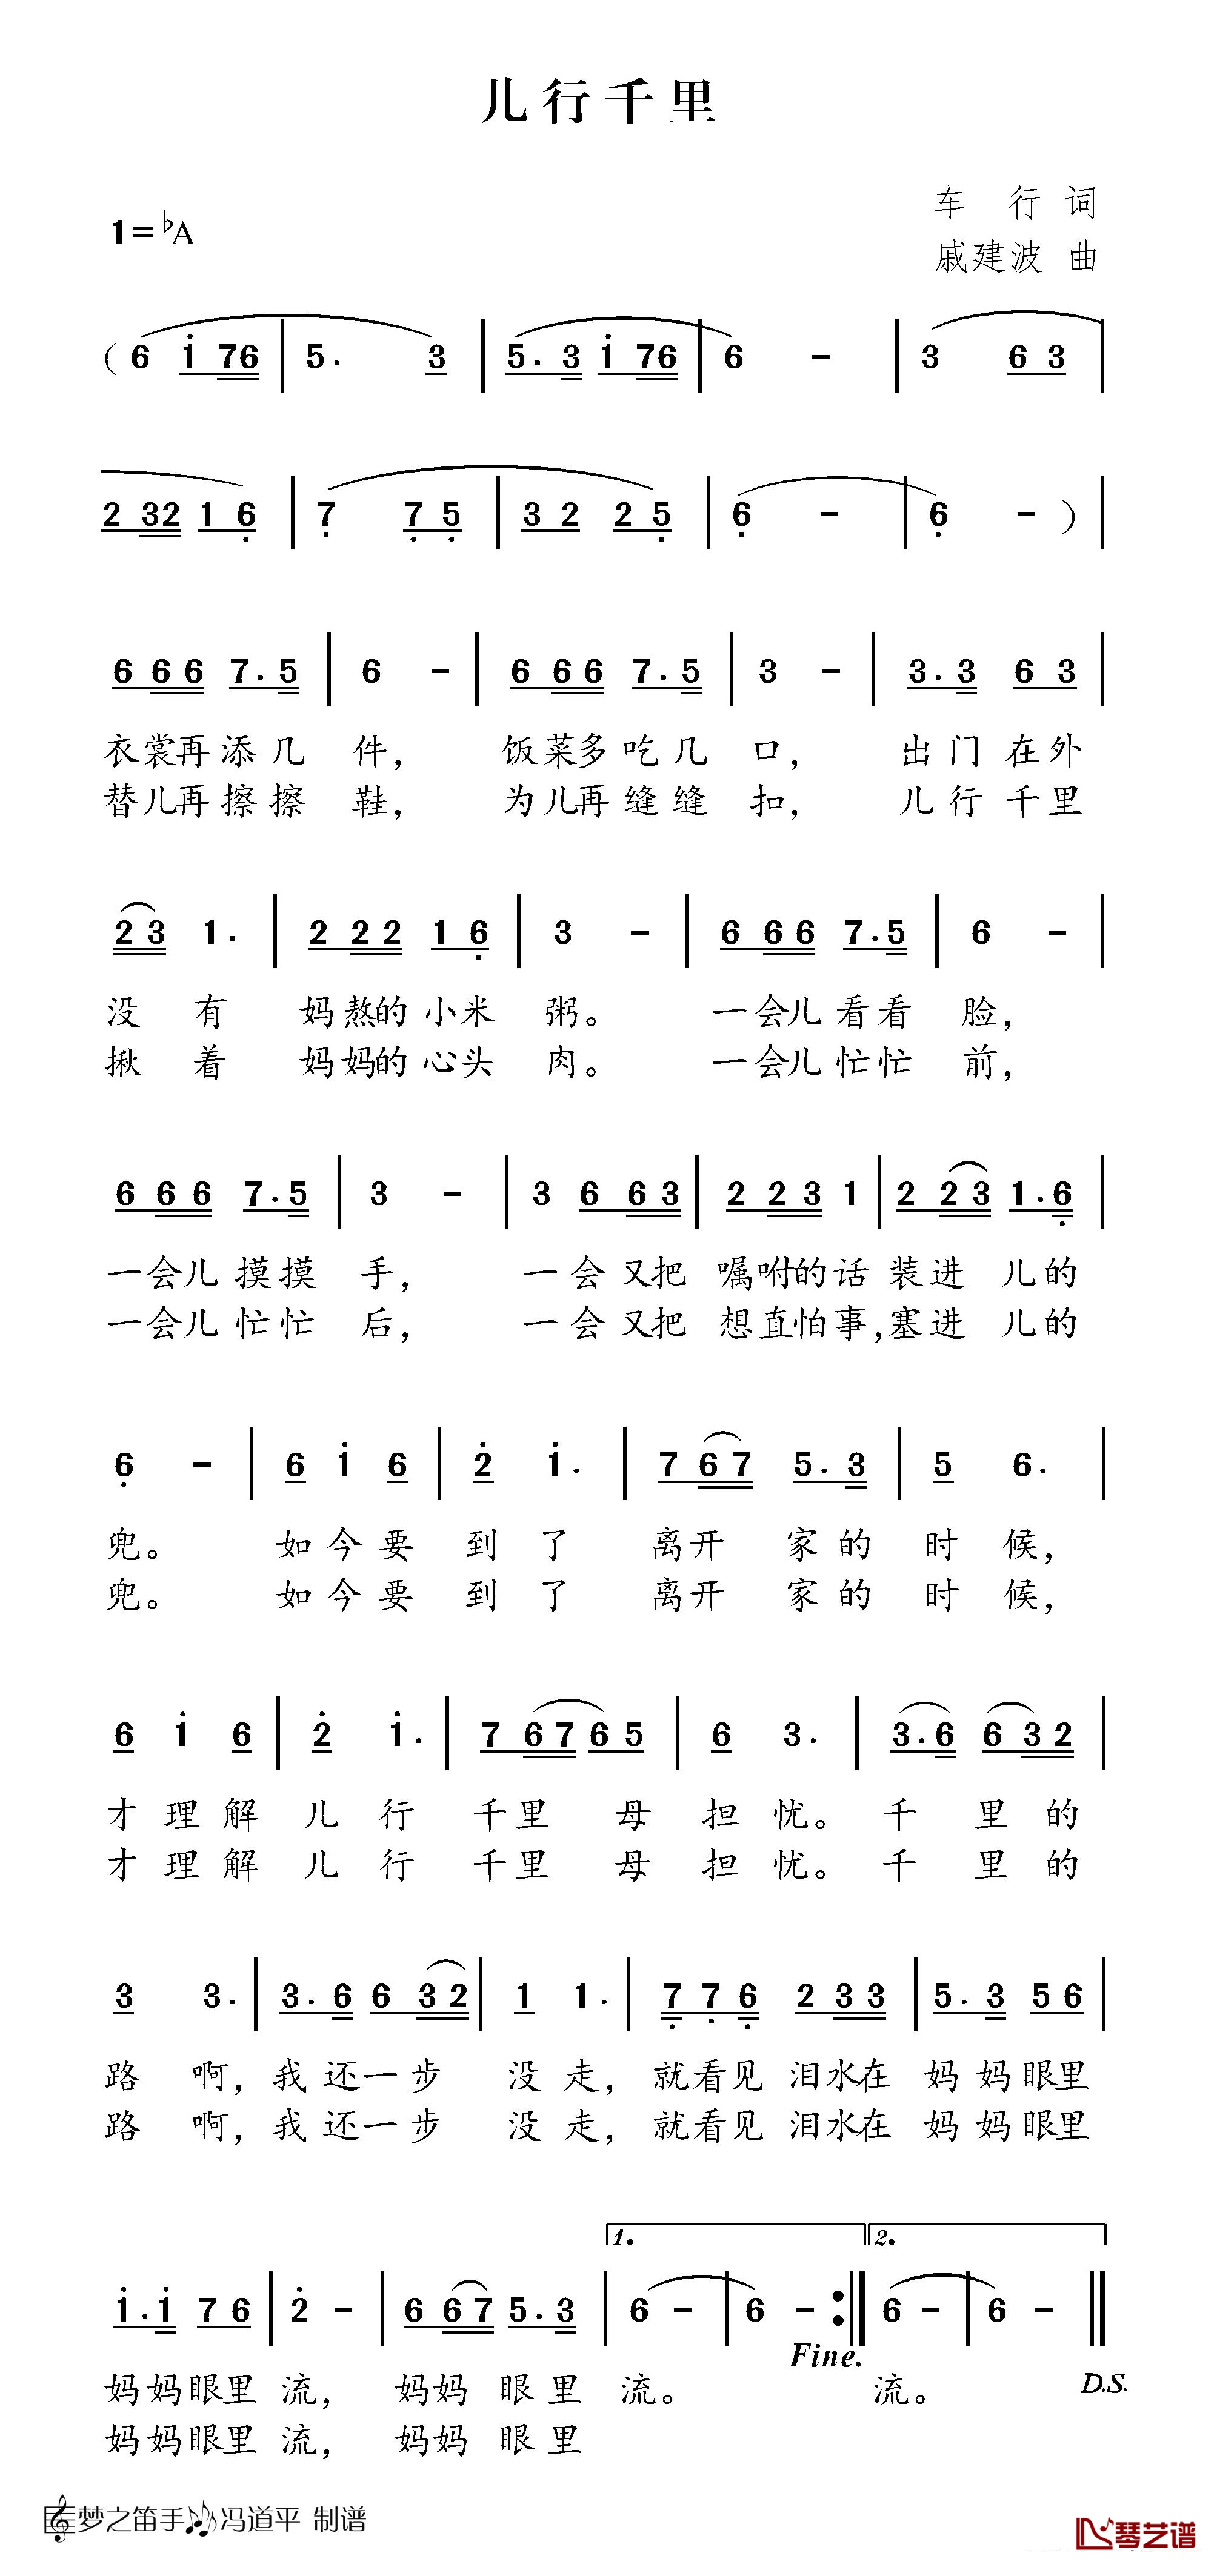 儿行千里
车 行 词
1=♭A
戚建波 曲
( 6 i 76 | 5. 3 | 5. 3 i 76 | 6 - | 3 6 3 |
2 32 1 6 | 7 7 5 | 3 2 2 5 | 6 - | 6 - ) |
6 6 6 7. 5 | 6 - | 6 6 6 7. 5 | 3 - | 3. 3 6 3 |
衣裳再添几 件， 饭菜多吃几 口， 出门在外
替儿再擦擦 鞋， 为儿再缝缝 扣， 儿行千里
2 3 1. | 2 2 2 1 6 | 3 - | 6 6 6 7. 5 | 6 - |
没 有 妈熬的小米 粥。 一会儿看看 脸，
揪 着 妈妈的心头 肉。 一会儿忙忙 前，
6 6 6 7. 5 | 3 - | 3 6 6 3 | 2 2 3 1 | 2 2 3 1. 6 |
一会儿摸摸 手， 一会又把 嘱咐的话 装进 儿的
一会儿忙忙 后， 一会又把 想直怕事，塞进 儿的
6 - | 6 i 6 | 2 i. | 7 6 7 5. 3 | 5 6. |
兜。 如今要 到了 离开 家的 时候，
兜。 如今要 到了 离开 家的 时候，
6 i 6 | 2 i. | 7 6 7 6 5 | 6 3. | 3. 6 6 3 2 |
才理解 儿行 千里 母 担忧。 千 里的
才理解 儿行 千里 母 担忧。 千 里的
3 3. | 3. 6 6 3 2 | 1 1. | 7 7 6 2 3 3 | 5. 3 5 6 |
路 啊，我还一步 没走，就看见 泪水在 妈妈眼里
路 啊，我还一步 没走，就看见 泪水在 妈妈眼里
1. 2.
i. i 7 6 | 2 - | 6 6 7 5. 3 | 6 - | 6 - :|| 6 - | 6 - ||
Fine.
D.S.
妈妈眼里 流， 妈妈 眼里 流。 流。
妈妈眼里 流， 妈妈 眼里
梦之笛手 冯道平 制谱
琴艺谱